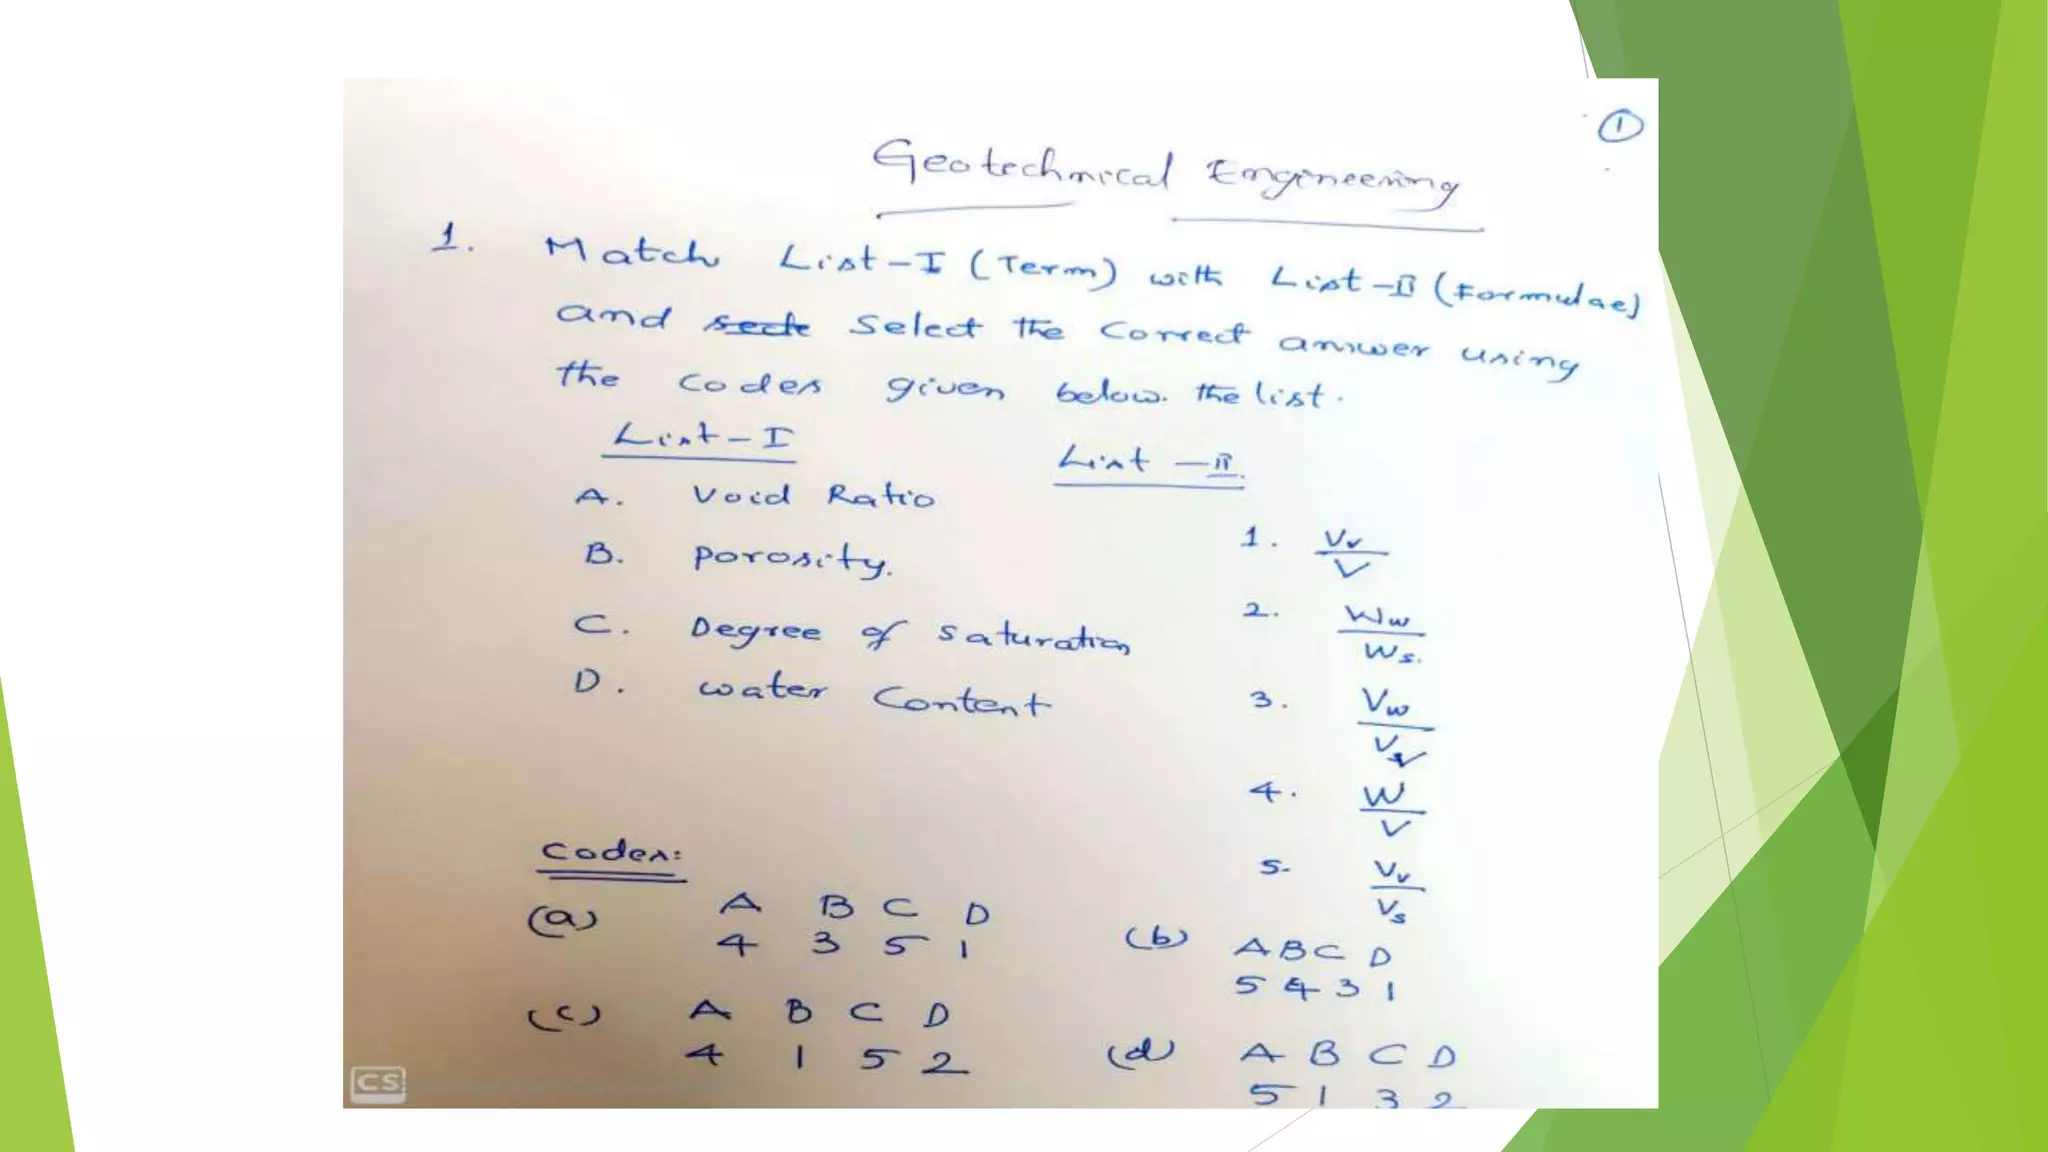 ①
Geotechnical Engineering
1. Match List-I (Term) with List-II (Formulae)
and select the correct answer using
the codes given below the list.
List-I
List-II
A. Void Ratio
B. Porosity.
C. Degree of Saturation
D. water Content
1. Vv/V
2. Ww/Ws.
3. Vw/Vv
4. W/V
5. Vv/Vs
Codes:
(a) A B C D
4 3 5 1
(b) A B C D
5 4 3 1
(c) A B C D
4 1 5 2
(d) A B C D
5 1 3 2
CS